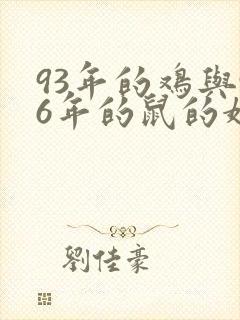 93年的鸡與
6年的鼠的
劉佳豪